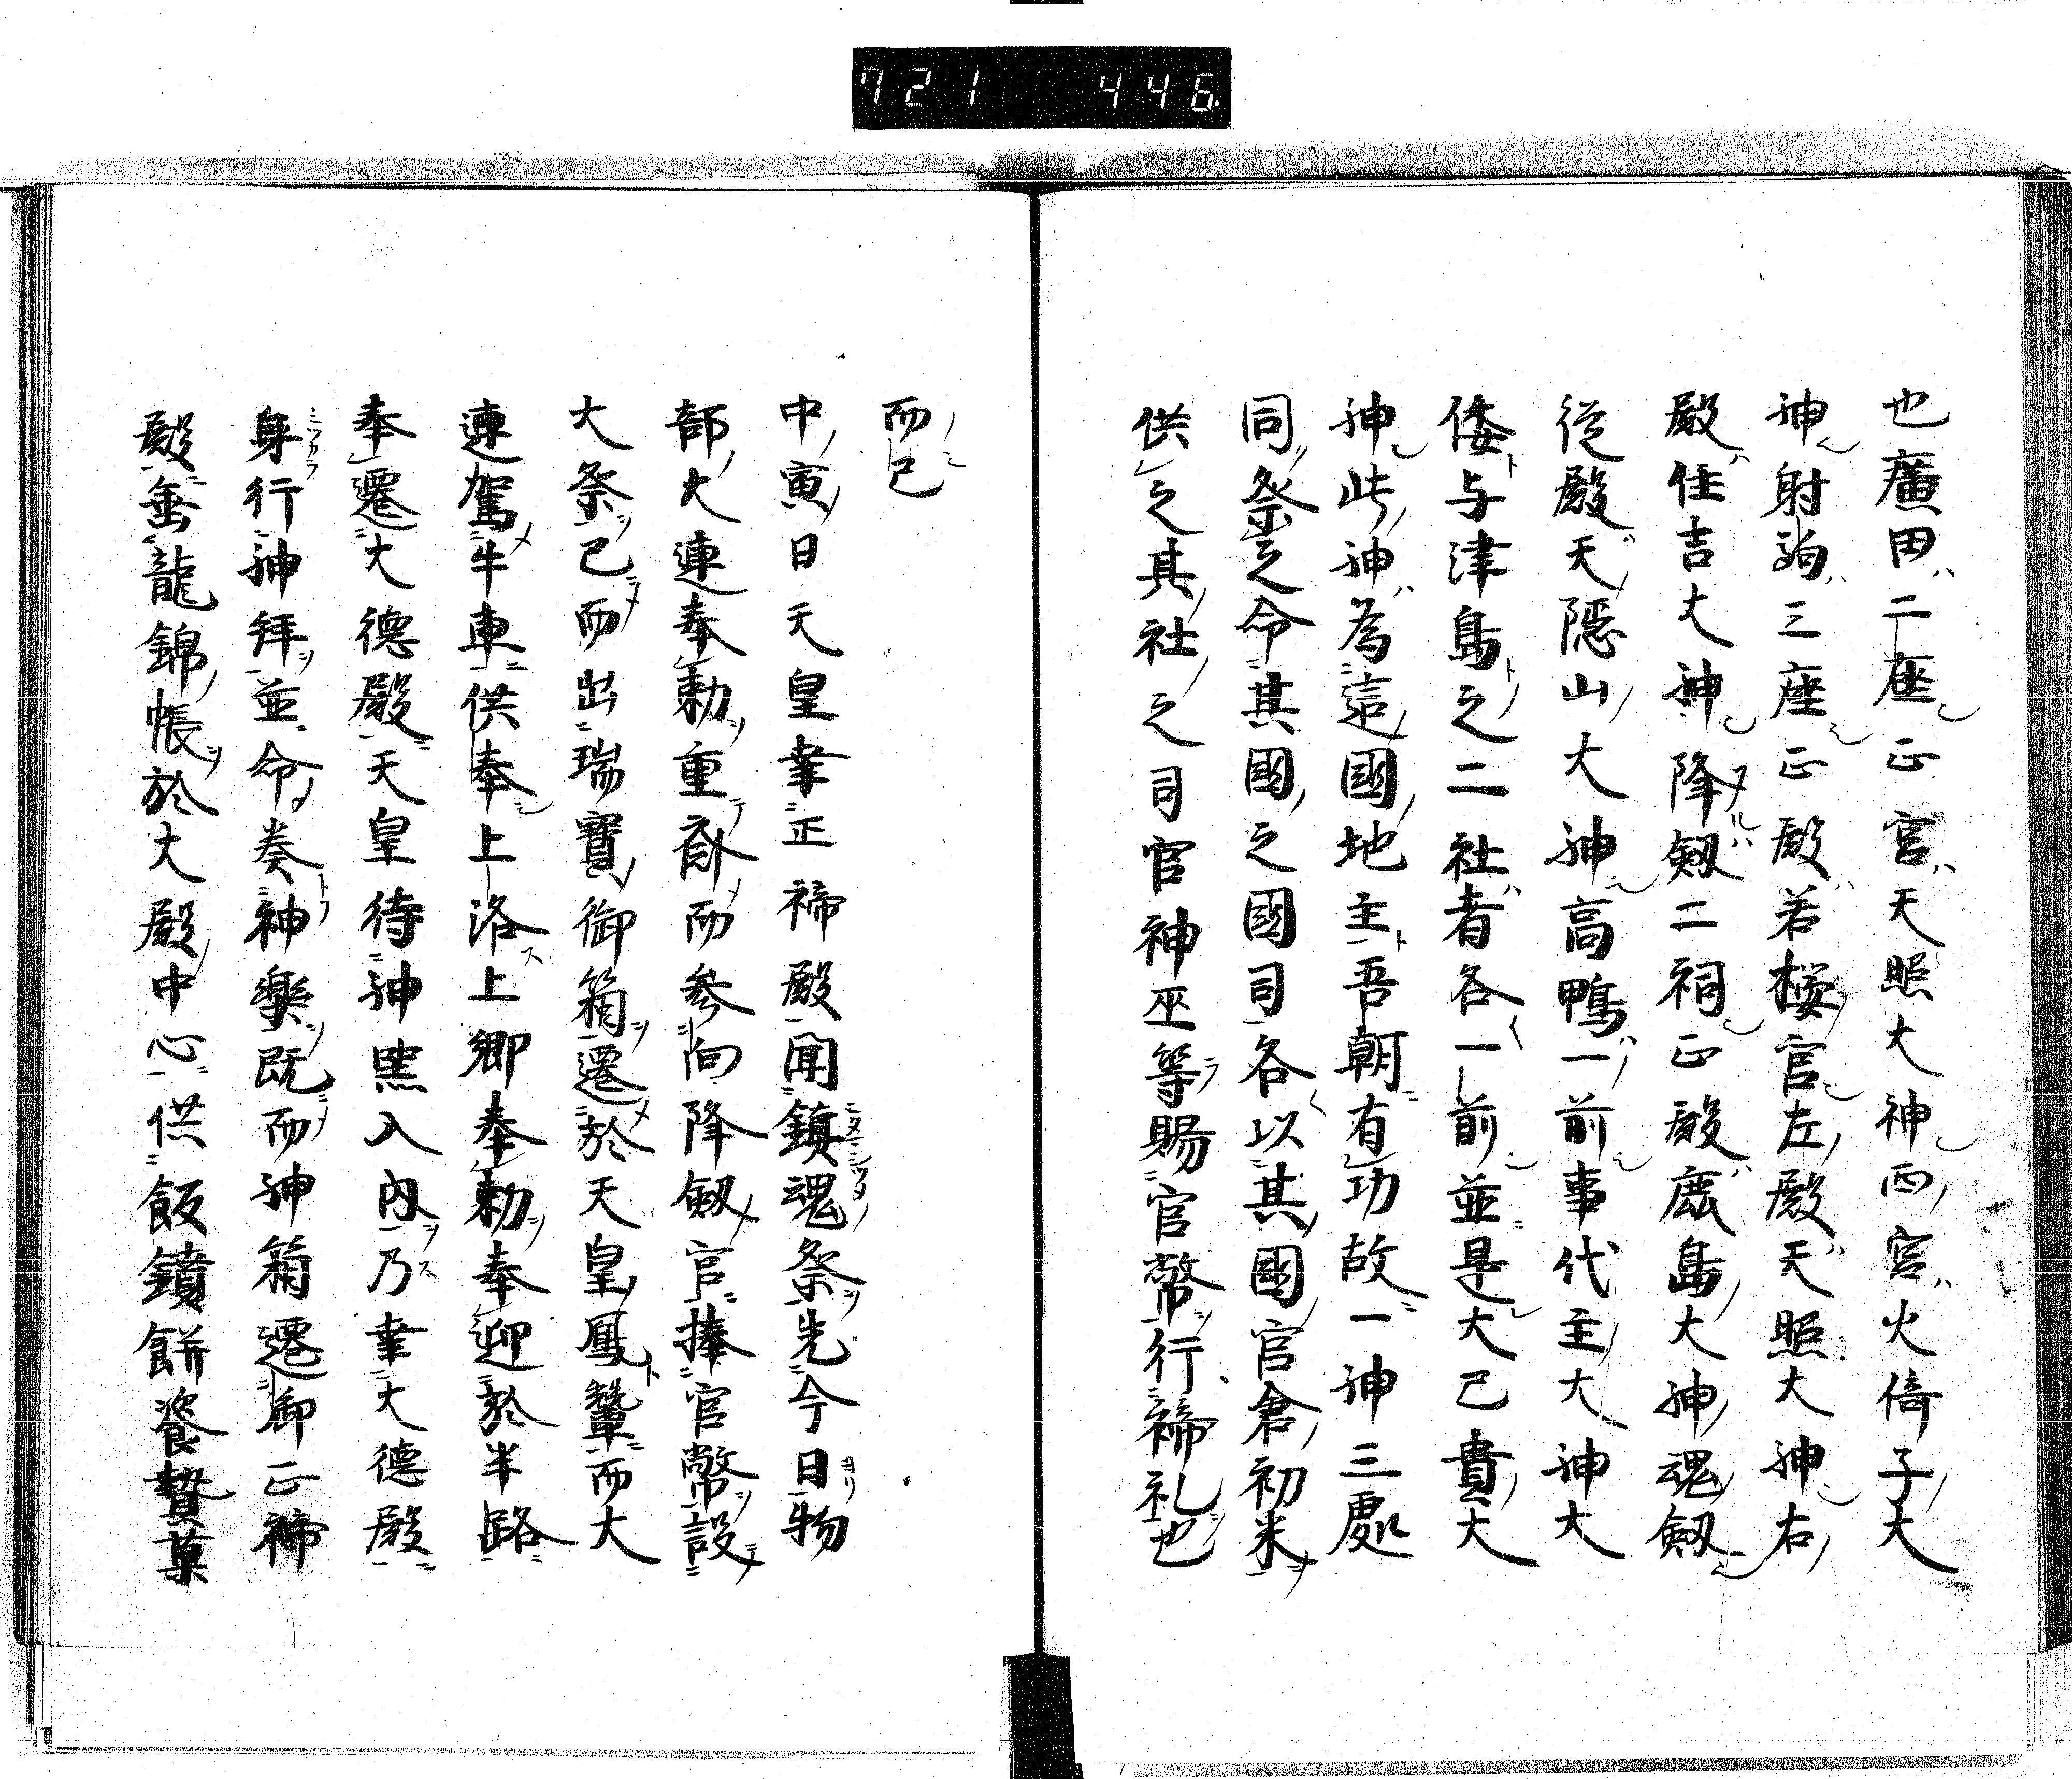 721 446
也廣田二座正官天照大神西宮火倚子大
神射狗三座正殿若桜官左殿天照大神右
殿住吉大神降劔二祠正殿鹿島大神魂劔
從殿天隱山大神高鴨一前事代主大神大
倭与津島之二社者各一前並是大己貴大
神此神為這國地主吾朝有功故一神三處
同祭之命其國之國司各以其國官倉初米
供之其社之司官神巫等賜官幣行禘礼也
而已
中寅日天皇幸正禘殿聞鎮魂祭先今日物
部大連奉勅重斎而参向降劔官捧官幣設
大祭已而出瑞寶御箱遷於天皇鳳輦而大
連駕牛車供奉上洛上卿奉勅奉迎於半路
奉遷大德殿天皇待神黑入内乃幸大德殿
身行神拜並命奏神樂既而神箱遷御正禘
殿垂龍錦帳於大殿中心供飯鏡餅餈贄菓